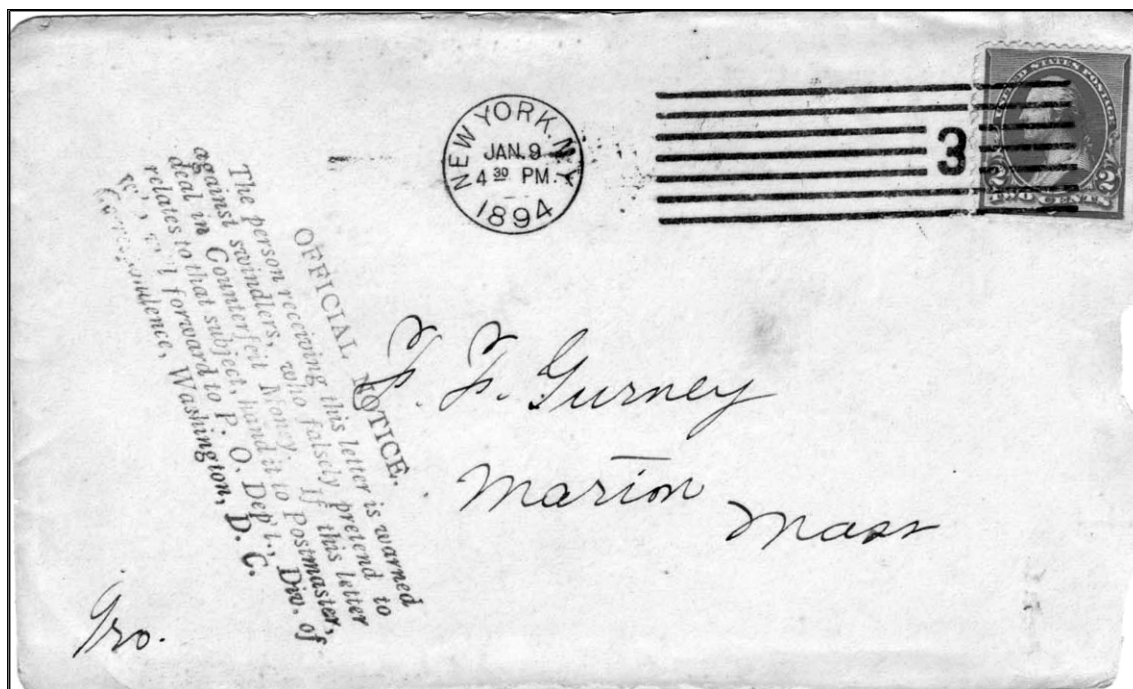 NEW YORK, N.Y.
JAN. 9
4 30 PM.
1894
3
UNITED STATES POSTAGE
2 2
TWO CENTS.
OFFICIAL NOTICE.
The person receiving this letter is warned
against swindlers, who falsely pretend to
deal in Counterfeit Money. If this letter
relates to that subject, hand it to Postmaster,
forward to P. O. Dep't., Div. of
Correspondence, Washington, D. C.
F. F. Gurney
Marion
Mass